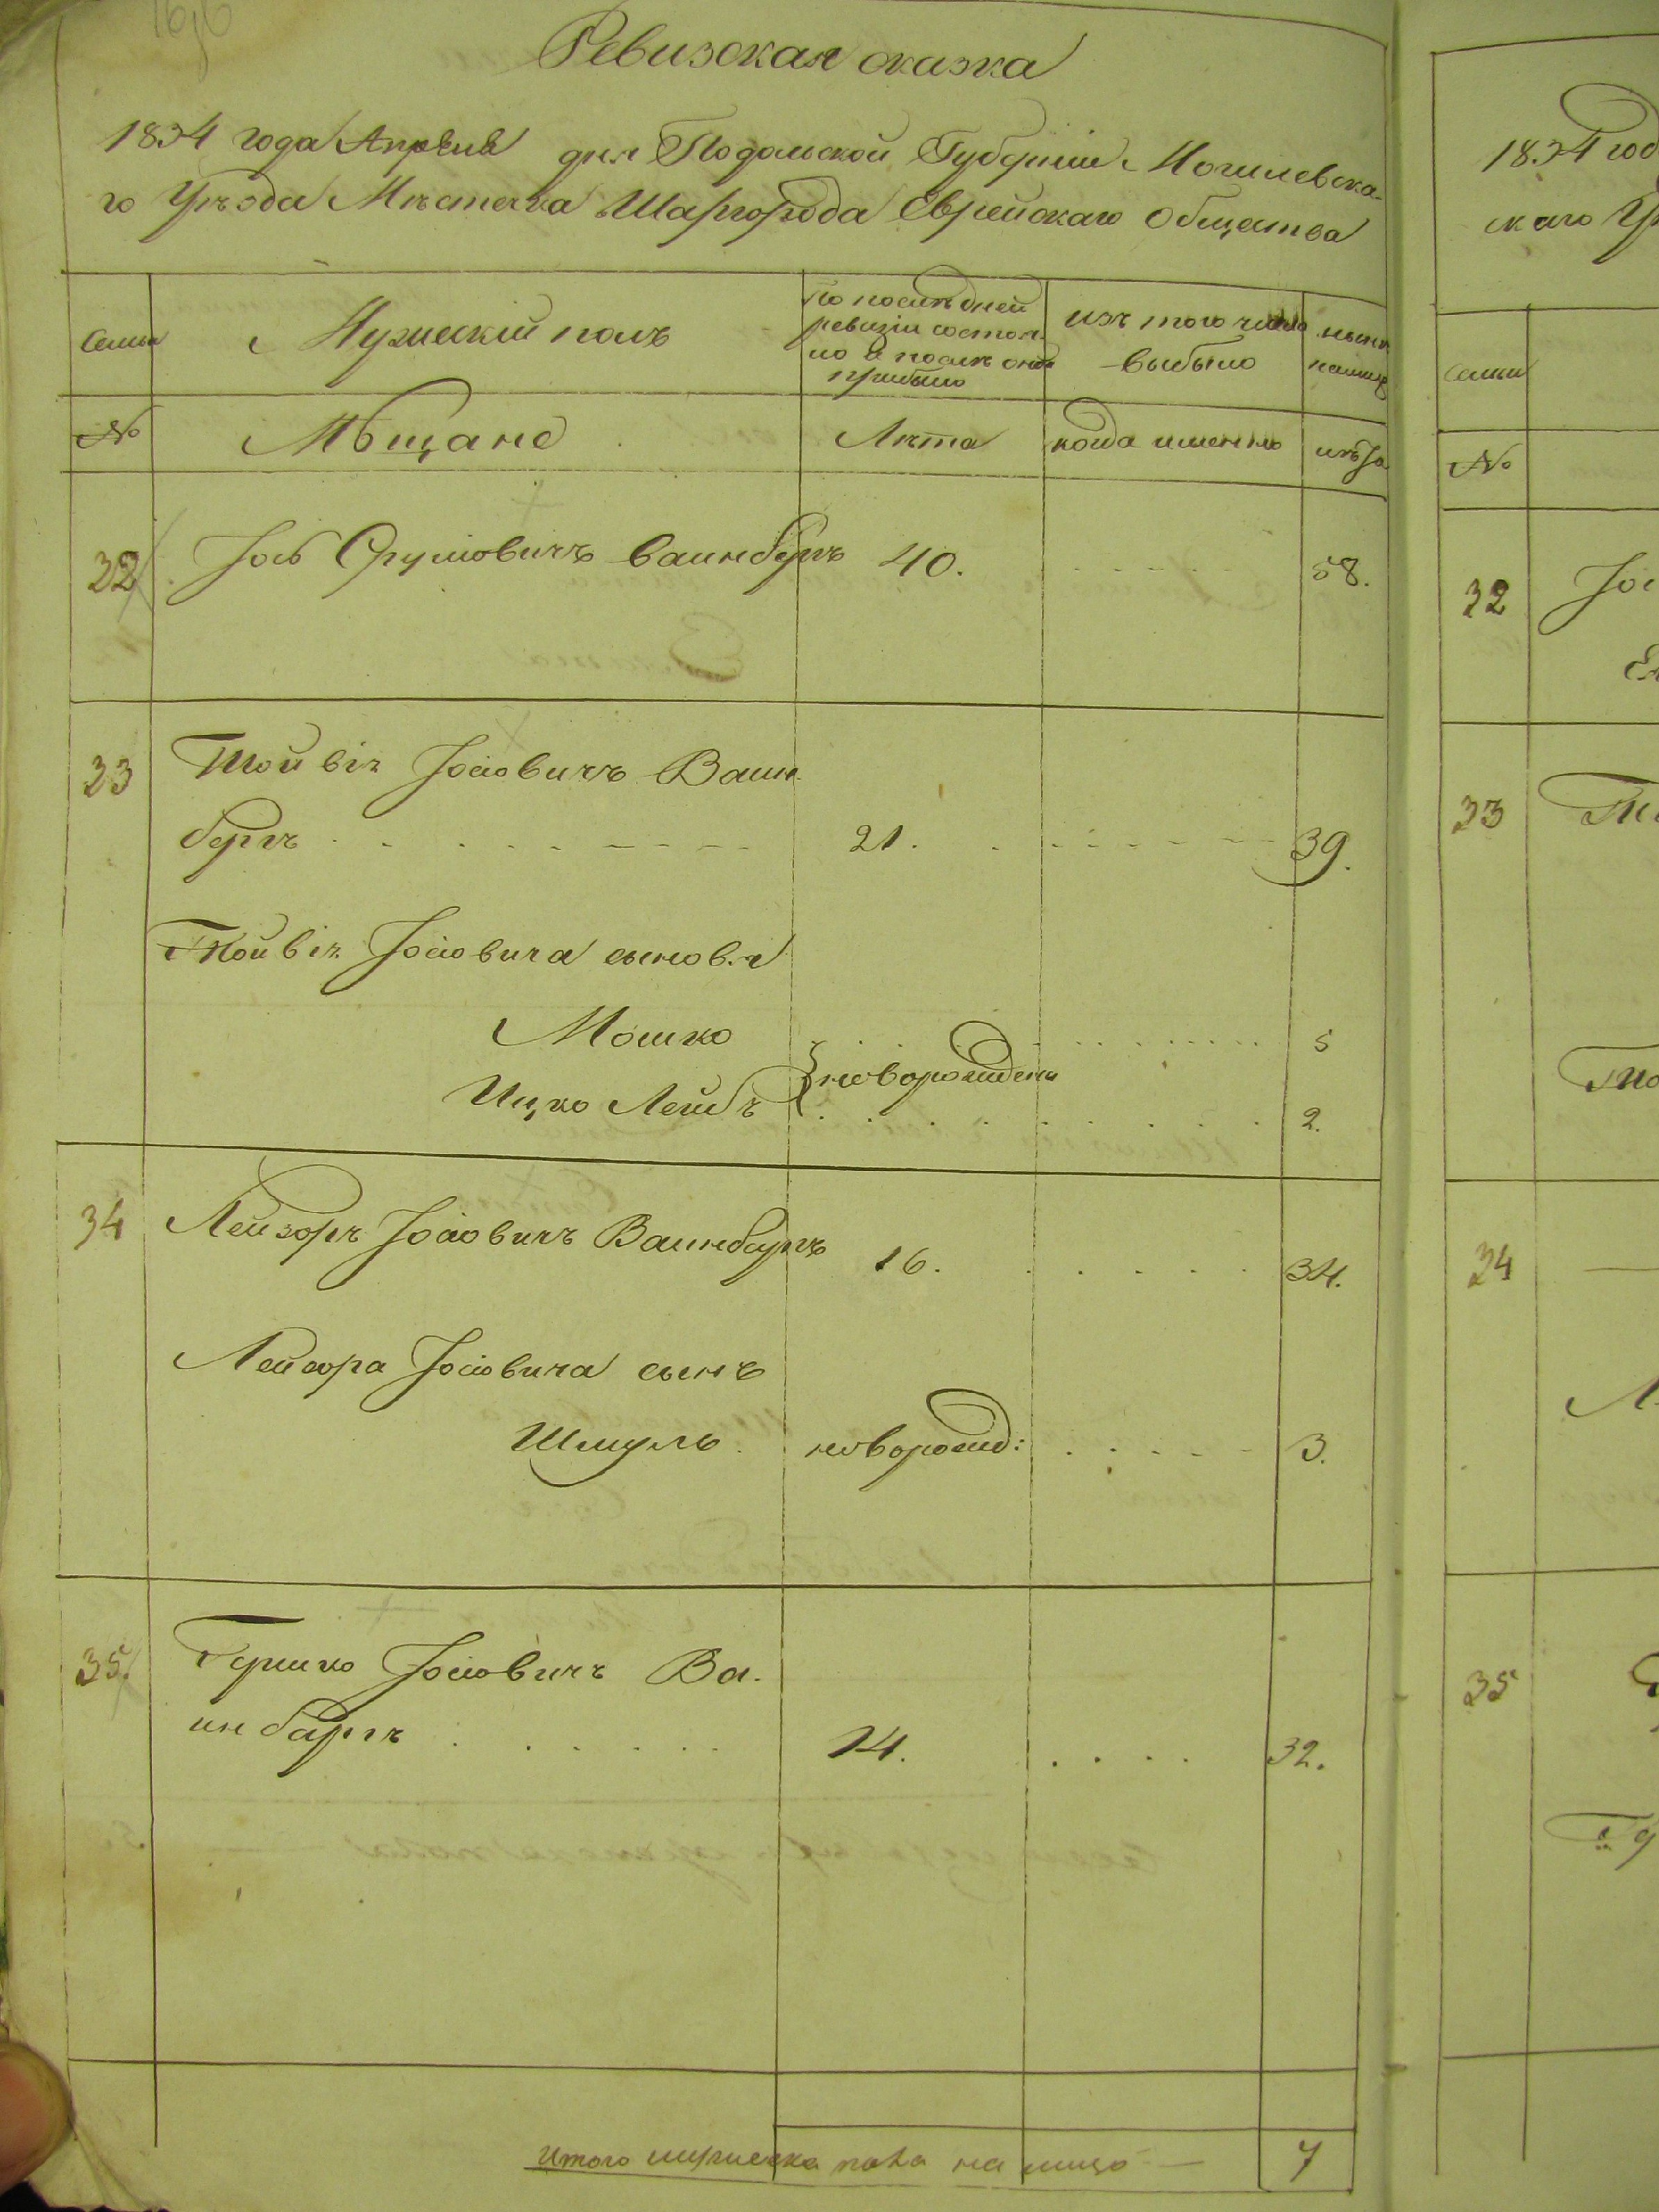 Ревизская сказка
1834 года Апреля дня Подольской Губерніи Могилевска-
го Уѣзда Мѣстечка Шаргорода Еврейскаго Общества
Семьи Мужескій полъ По послѣдней ревизіи состояло и послѣ онаго прибыло изъ того числа выбыло нынѣ на лицо
№ Мѣщане Лѣта когда именно
32 Іось Срулiовичъ Ваинбергъ 40. 58.
33 Тойвіъ Іосіовичъ Ваин-
бергъ 21. 39.
Тойвіъ Іосіовича сыновья
Мошко 5
новорожденны
Ицко Лейбъ 2.
34 Лейзоръ Іосіовичъ Ваинбаргъ 16. 34.
Лейзора Іосіовича сынъ
Шмуль новорожд: 3.
35 Гершко Іосіовичъ Ва-
инбаргъ 14. 32.
Итого мужеска пола на лицо — 7
1834 год
скаго
Семьи
№
32
33
34
35